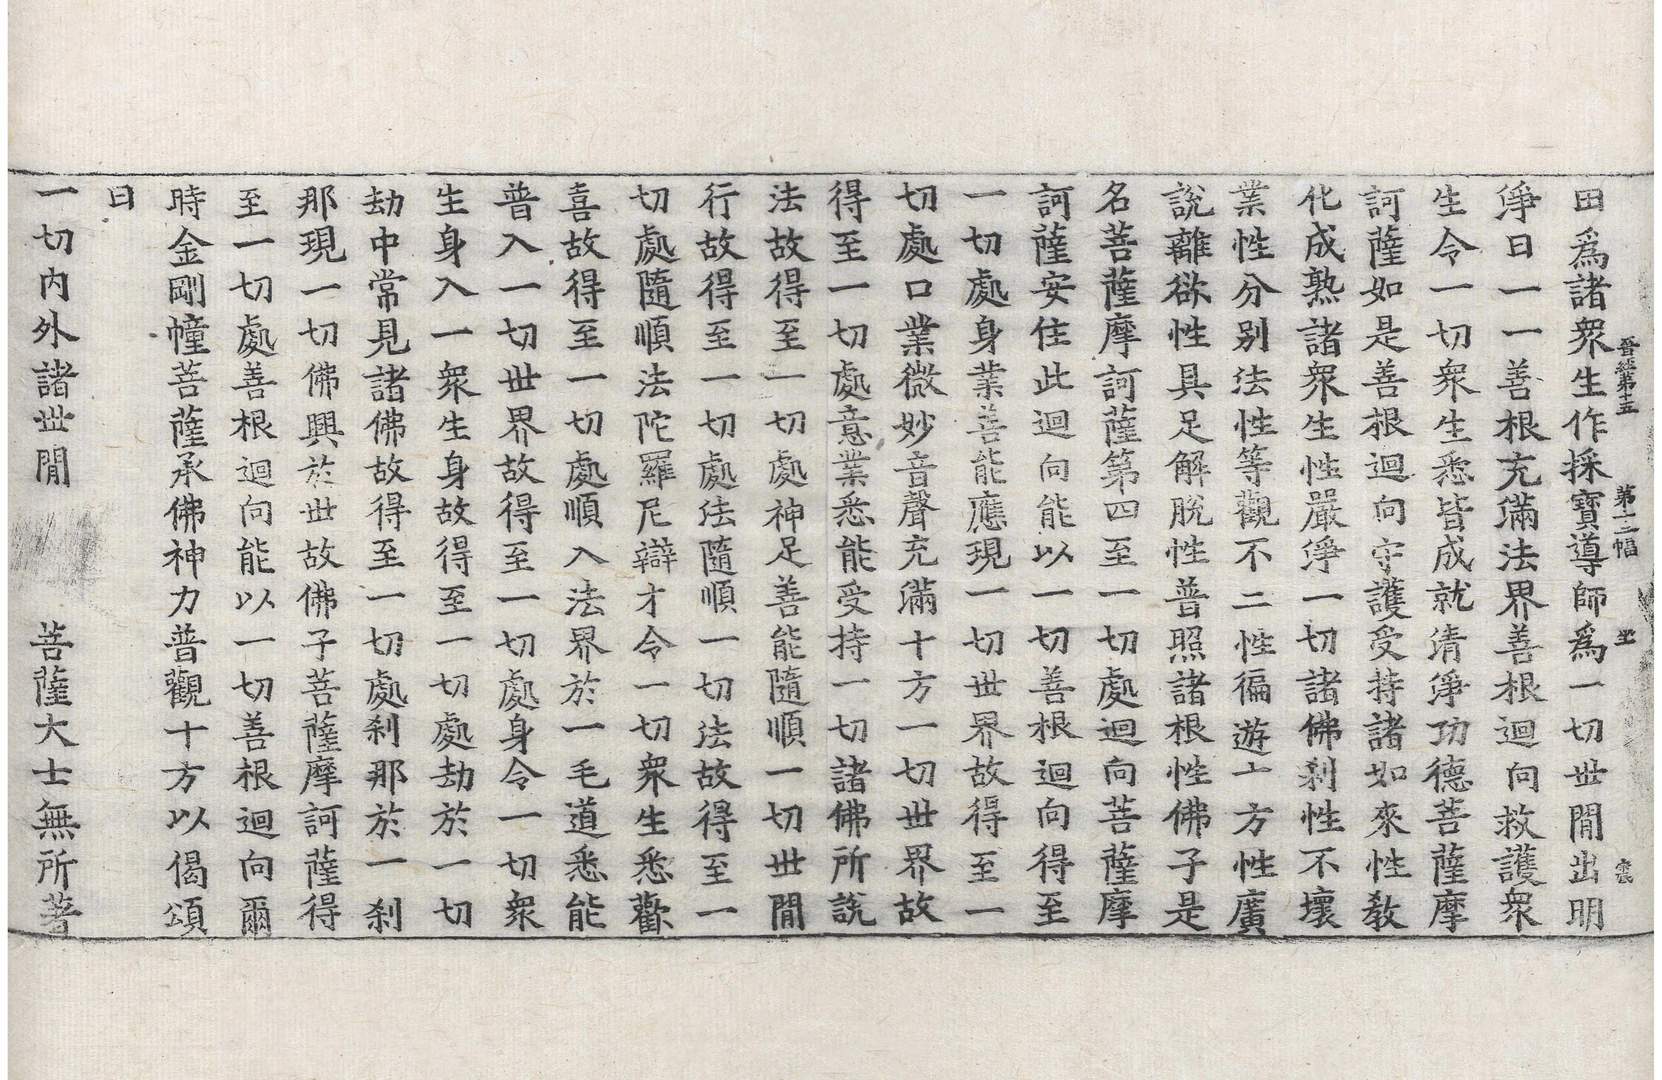 晉經第十五 第十二幅 坐
田爲諸衆生作採寶導師爲一切世間出明
淨日一一善根充滿法界善根迴向救護衆
生令一切衆生悉皆成就清淨功德菩薩摩
訶薩如是善根迴向守護受持諸如來性教
化成熟諸衆生性嚴淨一切諸佛刹性不壞
業性分别法性等觀不二性徧遊十方性廣
說離欲性具足解脫性普照諸根性佛子是
名菩薩摩訶薩第四至一切處迴向菩薩摩
訶薩安住此迴向能以一切善根迴向得至
一切處身業善能應現一切世界故得至一
切處口業微妙音聲充滿十方一切世界故
得至一切處意業悉能受持一切諸佛所說
法故得至一切處神足善能隨順一切世間
行故得至一切處法隨順一切法故得至一
切處隨順法陀羅尼辯才令一切衆生悉歡
喜故得至一切處順入法界於一毛道悉能
普入一切世界故得至一切處身令一切衆
生身入一衆生身故得至一切處劫於一切
劫中常見諸佛故得至一切處刹那於一刹
那現一切佛興於世故佛子菩薩摩訶薩得
至一切處善根迴向能以一切善根迴向爾
時金剛幢菩薩承佛神力普觀十方以偈頌
曰
一切内外諸世間 菩薩大士無所著